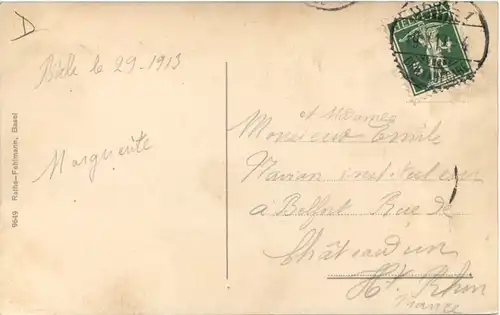 D
le 29-1913
Marguerite
9649 Rathe-Fehlmann, Basel
HELVETIA
et Madame
Monsieur Emile
à Belfort Rue de
Châteaudun
Ht Rhin
France